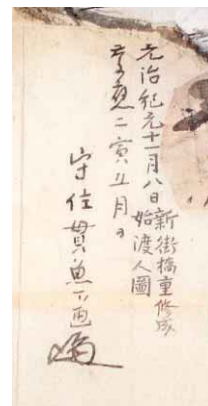 元治紀元十一月八日新街橋重修成
始渡人圖
慶應二寅五月日
守住貫魚下画